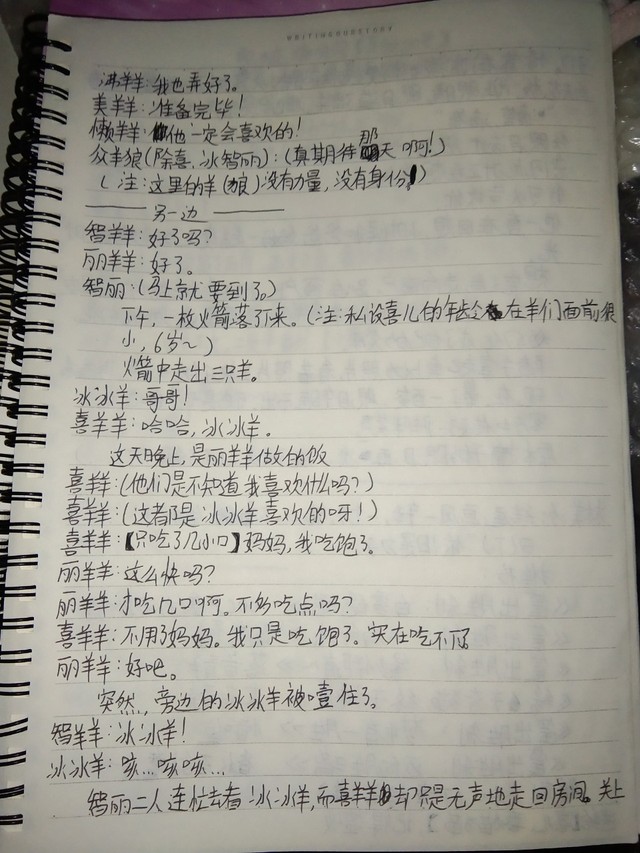 沸羊羊:我也弄好了。
美羊羊:准备完毕!
懒羊羊:他一定会喜欢的!
众羊狼(除喜、冰智丽):(真期待那天啊!)
(注:这里的羊(狼)没有力量,没有身份!)
——— 另一边 ———
智羊羊:好了吗?
丽羊羊:好了。
智丽:(马上就要到了。)
下午,一枚火箭落了下来。(注:私设喜儿的年龄在羊们面前很
小,6岁~)
火箭中走出三只羊。
冰冰羊:哥哥!
喜羊羊:哈哈,冰冰羊。
这天晚上,是丽羊羊做的饭
喜羊羊:(他们是不知道我喜欢什么吗?)
喜羊羊:(这都是冰冰羊喜欢的呀!)
喜羊羊:【只吃了几小口】妈妈,我吃饱了。
丽羊羊:这么快吗?
丽羊羊:才吃几口啊。不多吃点吗?
喜羊羊:不用了妈妈。我只是吃饱了。实在吃不下了
丽羊羊:好吧。
突然,旁边的冰冰羊被噎住了。
智羊羊:冰冰羊!
冰冰羊:咳...咳咳...
智丽二人连忙去看冰冰羊,而喜羊羊却只是无声地走回房间。关上